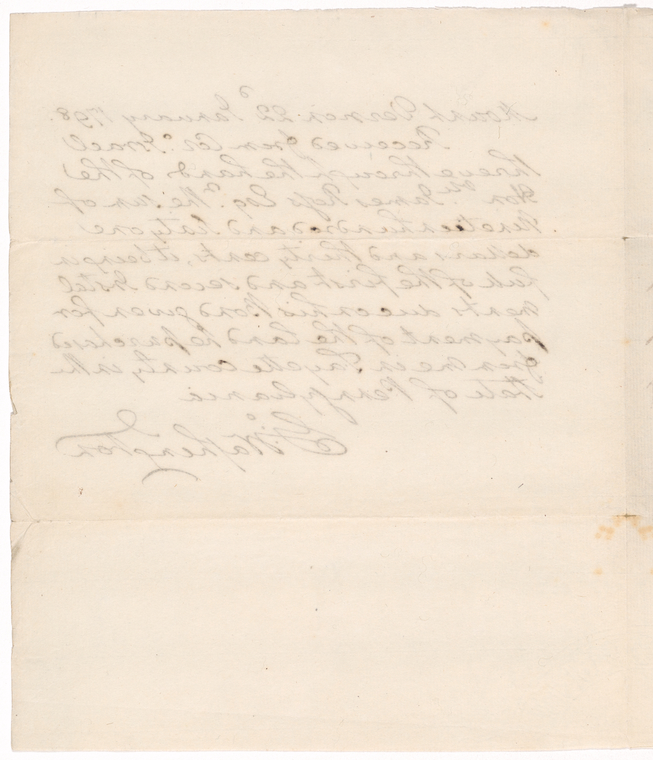 Mount Vernon 22d January 1798.
Received from Col. Israel
Shreve through the hands of the
Honble James Ross Esqr. the sum of
hundred and sixty one
dollars and thirty cents, it being in
part of the first and second Instal
ments due on his Bond given for
payment of the land he purchased
from me in Fayette County, in the
State of Pennsylvania
Go: Washington